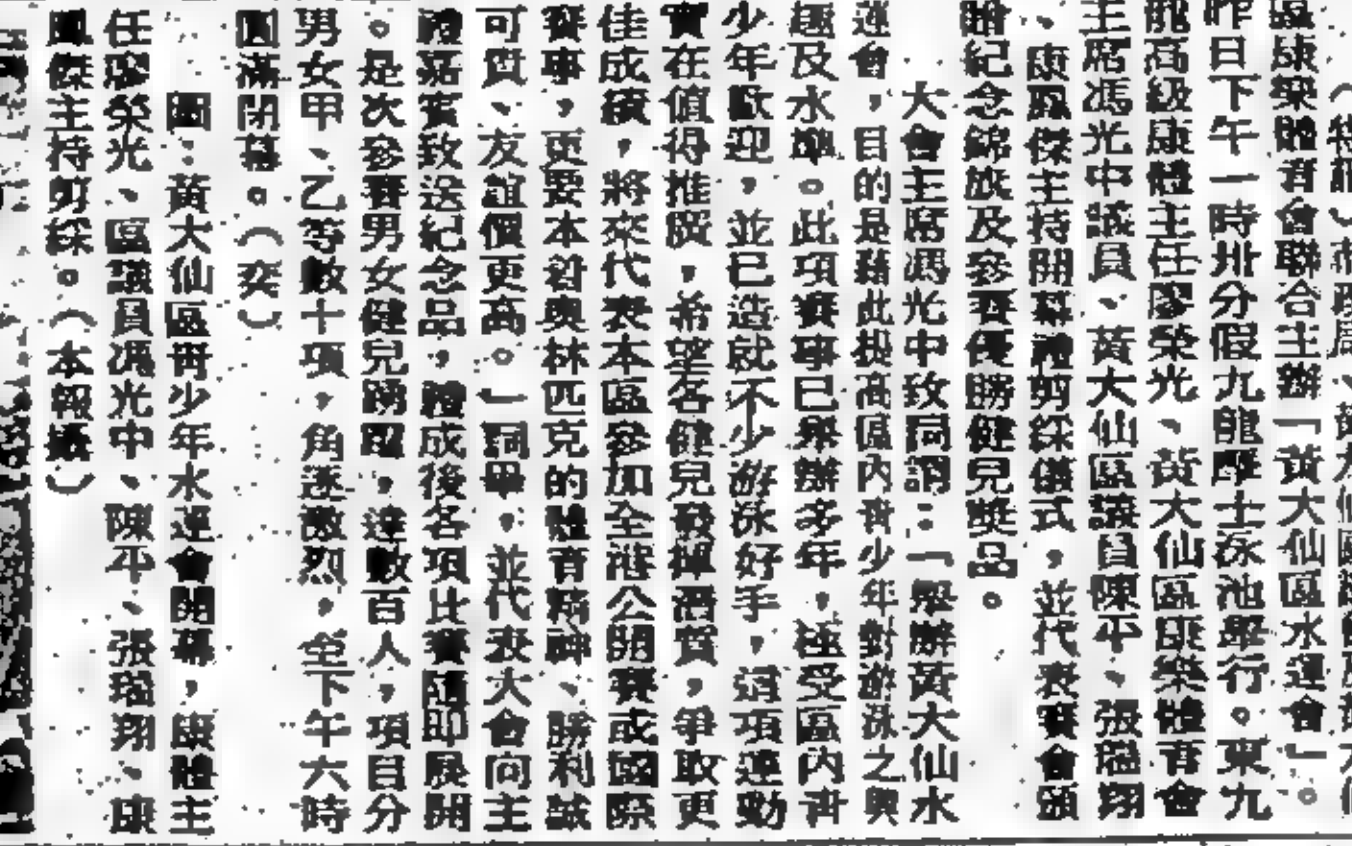 （特訊）市政局、黃大仙區
區康樂體育會聯合主辦「黃大仙區水運會」。
昨日下午一時卅分假九龍摩士泳池舉行。東九
龍高級康體主任廖榮光、黃大仙區康樂體育會
主席馮光中議員、黃大仙區議員陳平、張瑞翔
、康鳳傑主持開幕禮剪綵儀式，並代表賽會頒
贈紀念錦旗及參賽優勝健兒獎品。
大會主席馮光中致詞謂：「舉辦黃大仙水
運會，目的是藉此提高區內青少年對游泳之興
趣及水準。此項賽事已舉辦多年，極受區內青
少年歡迎，並已造就不少游泳好手，這項運動
實在值得推廣，希望各健兒發揮潛質，爭取更
佳成績，將來代表本區參加全港公開賽或國際
賽事，更要本着奧林匹克的體育精神、勝利誠
可貴、友誼價更高。」詞畢，並代表大會向主
禮嘉賓致送紀念品，禮成後各項比賽隨即展開
。是次參賽男女健兒踴躍，達數百人，項目分
男女甲、乙等數十項，角逐激烈，至下午六時
圓滿閉幕。（奕）
圖：黃大仙區青少年水運會開幕，康體主
任廖榮光、區議員馮光中、陳平、張瑞翔、康
鳳傑主持剪綵。（本報攝）